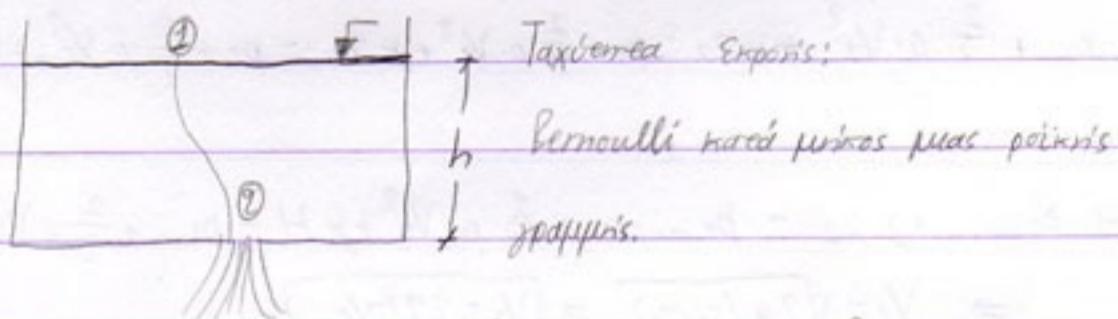 ①
Ταχύτητα εκροής:
h
Bernoulli κατά μήκος μιας ροϊκής
②
γραμμής.